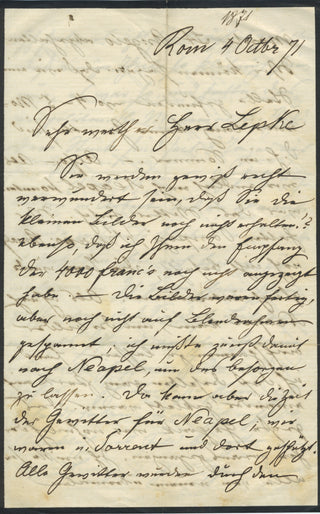 1871
Rom 4 Octbr 71
Sehr werther Herr Lepke
Sie werden gewiß recht
verwundert sein, daß Sie die
kleinen Bilder noch nicht erhalten!?
ebenso, daß ich Ihnen den Empfang
der 4000 Francs noch nicht angezeigt
habe. — Die Bilder waren fertig,
aber noch nicht auf Blendrahmen
gespannt, ich mußte zuerst damit
nach Neapel, um das besorgen
zu lassen. Da kam aber die Zeit
der Gewitter für Neapel, wir
waren in Sorrent und dort
Alle Gewitter wurden durch den